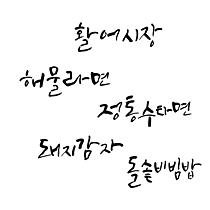 활어시장
해물라면
정통수타면
돼지감자
돌솥비빔밥